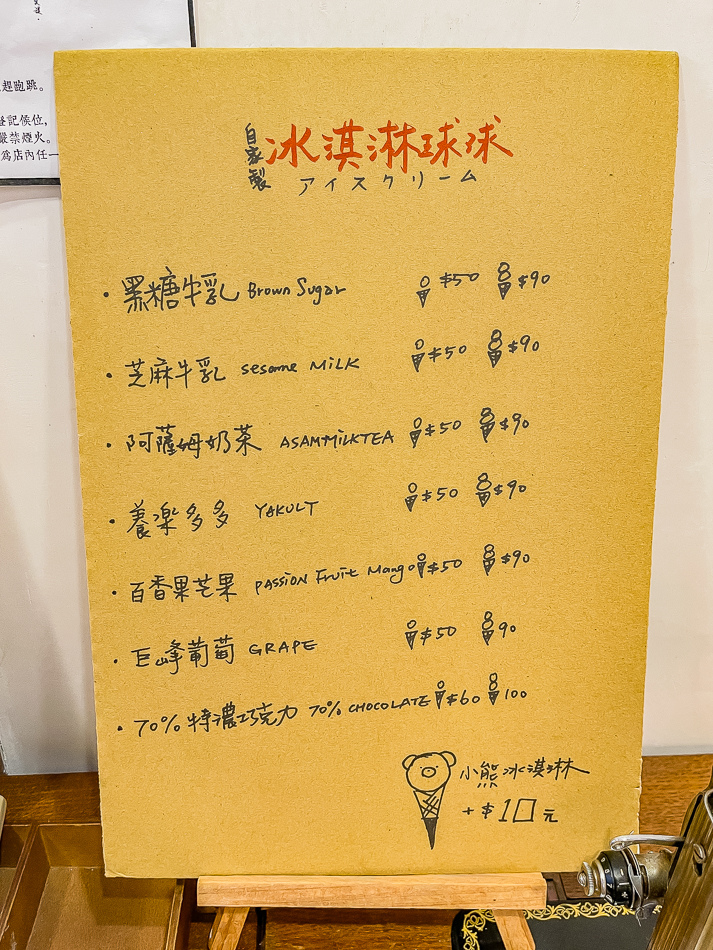 趕跑跳。
登記候位,
嚴禁煙火。
為店內任一
自家製 冰淇淋球球
アイスクリーム
・黑糖牛乳 Brown Sugar $50 $90
・芝麻牛乳 sesame MiLK $50 $90
・阿薩姆奶茶 ASAMMiLKTEA $50 $90
・養楽多多 YAKULT $50 $90
・百香果芒果 PASSiON Fruit Mango $50 $90
・巨峰葡萄 GRAPE $50 90
・70% 特濃巧克力 70% CHOCOLATE $60 100
小熊冰淇淋
+$10元